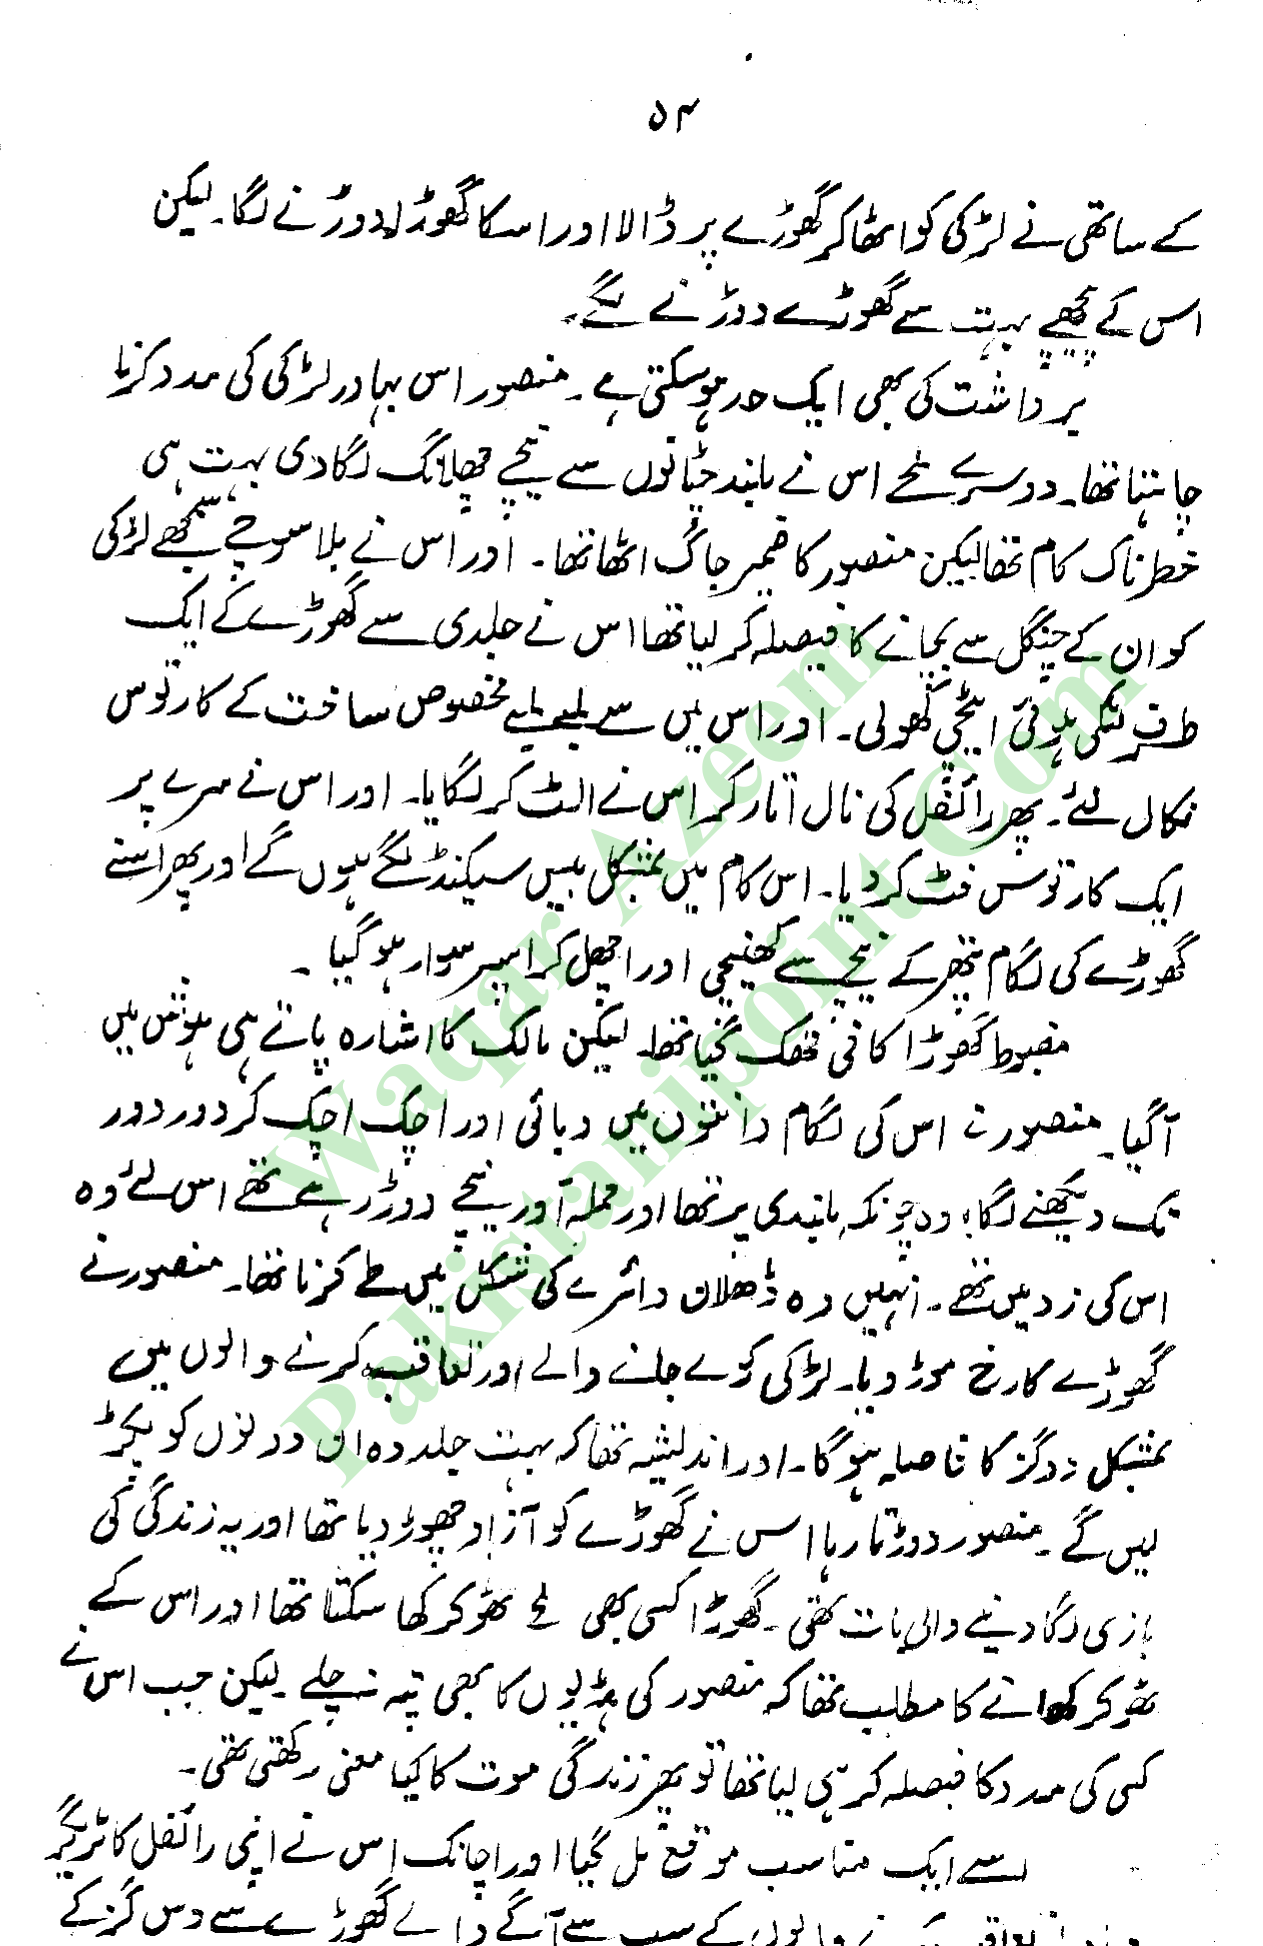 ۵۴
کے ساتھی نے لڑکی کو اٹھا کر گھوڑے پر ڈالا اور اسکا گھوڑا دوڑنے لگا۔ لیکن
اس کے پیچھے بہت سے گھوڑے دوڑنے لگے۔
برداشت کی بھی ایک حد ہو سکتی ہے۔ منصور اس بہادر لڑکی کی مدد کرنا
چاہتا تھا۔ دوسرے لمحے اس نے بلند چٹانوں سے نیچے چھلانگ لگا دی بہت ہی
خطرناک کام تھا لیکن منصور کا ضمیر جاگ اٹھا تھا۔ اور اس نے بلا سوچے سمجھے لڑکی
کو ان کے چنگل سے بچانے کا فیصلہ کر لیا تھا اس نے جلدی سے گھوڑے کے ایک
طرف لٹکی ہوئی اٹیچی کھولی۔ اور اس میں سے لمبے لمبے مخصوص ساخت کے کارتوس
نکال لئے۔ پھر رائفل کی نال اتار کر اس نے الٹ کر لگایا۔ اور اس نے سرے پر
ایک کارتوس فٹ کر دیا۔ اس کام میں بمشکل بیس سیکنڈ لگے ہوں گے اور پھر اسنے
گھوڑے کی لگام پتھر کے نیچے سے کھینچی اور اچھل کر اسپر سوار ہو گیا۔
مضبوط گھوڑا کافی تھک گیا تھا۔ لیکن مالک کا اشارہ پاتے ہی ہوش میں
آگیا۔ منصور نے اس کی لگام دانتوں میں دبائی اور اچک اچک کر دور دور
تک دیکھنے لگا، وہ چونکہ بلندی پر تھا اور حملہ آور نیچے دوڑ رہے تھے اس لئے وہ
اس کی زد میں تھے۔ انہیں وہ ڈھلان دائرے کی شکل میں طے کرنا تھا۔ منصور نے
گھوڑے کا رخ موڑ دیا۔ لڑکی کو لے جانے والے اور تعاقب کرنے والوں میں
بمشکل دو گز کا فاصلہ ہو گا۔ اور اندیشہ تھا کہ بہت جلد وہ ان دونوں کو پکڑ
لیں گے۔ منصور دوڑتا رہا اس نے گھوڑے کو آزاد چھوڑ دیا تھا اور یہ زندگی کی
بازی لگا دینے والی بات تھی۔ گھوڑا کسی بھی لمحے ٹھوکر کھا سکتا تھا اور اس کے
ٹھوکر کھانے کا مطلب تھا کہ منصور کی ہڈیوں کا بھی پتہ نہ چلے۔ لیکن جب اس نے
کسی کی مدد کا فیصلہ کر ہی لیا تھا تو پھر زندگی موت کا کیا معنی رکھتی تھی۔
اسے ایک مناسب موقع مل گیا اور اچانک اس نے اپنی رائفل کا ٹریگر
والوں کے سب سے آگے والے گھوڑے سے دس گز کے
Waqar Azeem
Pakistanipoint.Com